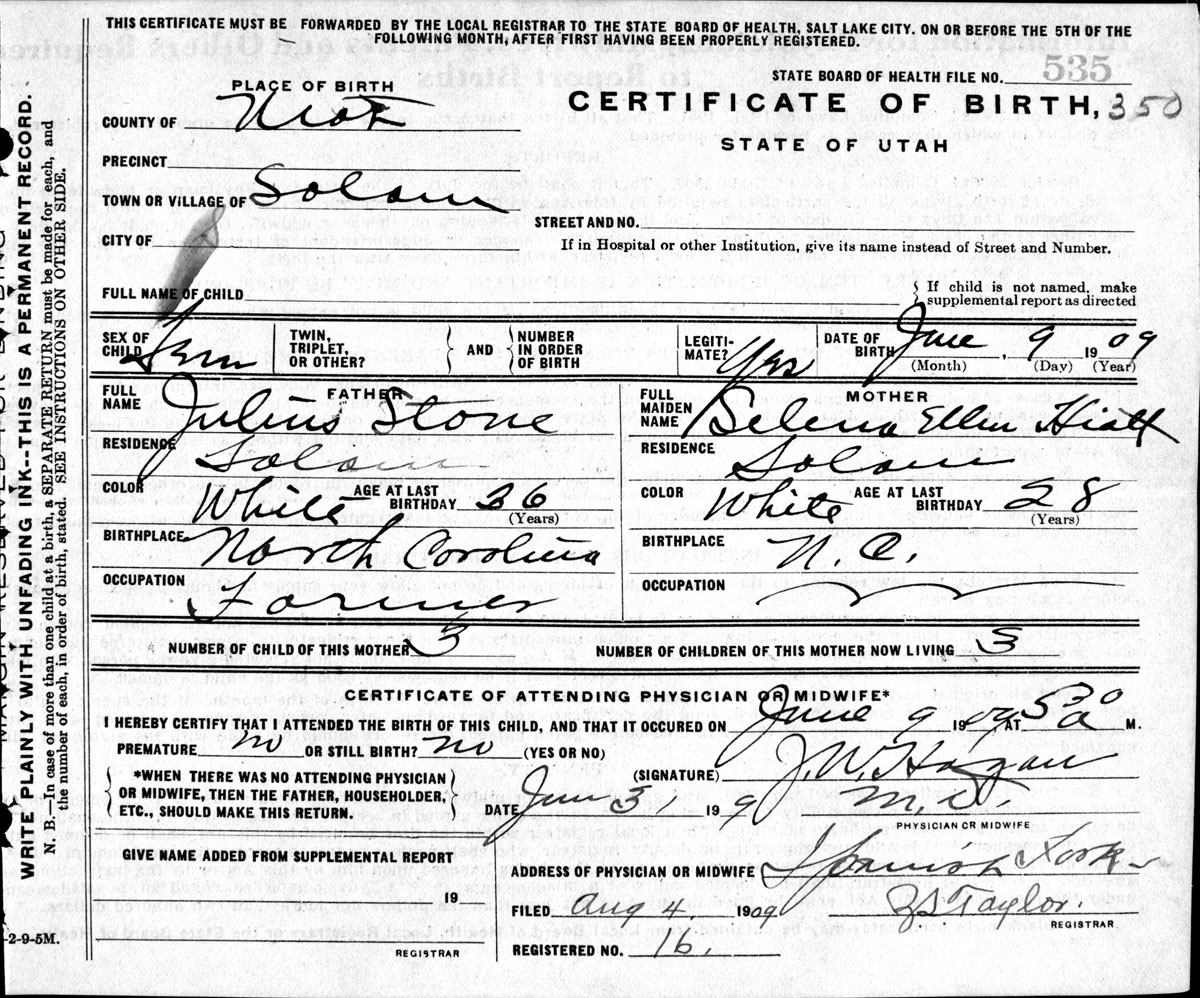 THIS CERTIFICATE MUST BE FORWARDED BY THE LOCAL REGISTRAR TO THE STATE BOARD OF HEALTH, SALT LAKE CITY. ON OR BEFORE THE 5TH OF THE
FOLLOWING MONTH, AFTER FIRST HAVING BEEN PROPERLY REGISTERED.
STATE BOARD OF HEALTH FILE NO. 535
PLACE OF BIRTH
CERTIFICATE OF BIRTH, 350
COUNTY OF
STATE OF UTAH
PRECINCT
TOWN OR VILLAGE OF Salem
STREET AND NO.
CITY OF
If in Hospital or other Institution, give its name instead of Street and Number.
FULL NAME OF CHILD
If child is not named, make
supplemental report as directed
SEX OF CHILD Fem
TWIN, TRIPLET, OR OTHER? AND NUMBER IN ORDER OF BIRTH
LEGITI-MATE? Yes
DATE OF BIRTH June, 9 1909
(Month) (Day) (Year)
FATHER
FULL NAME Julius Stone
RESIDENCE Salem
COLOR White AGE AT LAST BIRTHDAY 36
(Years)
BIRTHPLACE North Carolina
OCCUPATION Farmer
MOTHER
FULL MAIDEN NAME Selena Ellen Hiatt
RESIDENCE Salem
COLOR White AGE AT LAST BIRTHDAY 28
(Years)
BIRTHPLACE N. C.
OCCUPATION
NUMBER OF CHILD OF THIS MOTHER
NUMBER OF CHILDREN OF THIS MOTHER NOW LIVING
CERTIFICATE OF ATTENDING PHYSICIAN OR MIDWIFE*
I HEREBY CERTIFY THAT I ATTENDED THE BIRTH OF THIS CHILD, AND THAT IT OCCURRED ON June 9 1909 AT 530 a M.
PREMATURE no OR STILL BIRTH? no (YES OR NO)
*WHEN THERE WAS NO ATTENDING PHYSICIAN
OR MIDWIFE, THEN THE FATHER, HOUSEHOLDER,
ETC., SHOULD MAKE THIS RETURN.
(SIGNATURE) J. W. Hagan
DATE 3 19 9
M. D.
PHYSICIAN OR MIDWIFE
GIVE NAME ADDED FROM SUPPLEMENTAL REPORT
19
REGISTRAR
ADDRESS OF PHYSICIAN OR MIDWIFE Spanish Fork
FILED Aug 4, 1909 Taylor.
REGISTRAR
REGISTERED NO. 16.
2-9-5M.
WRITE PLAINLY WITH UNFADING INK--THIS IS A PERMANENT RECORD.
N. B.—In case of more than one child at a birth, a SEPARATE RETURN must be made for each, and
the number of each, in order of birth, stated. SEE INSTRUCTIONS ON OTHER SIDE.